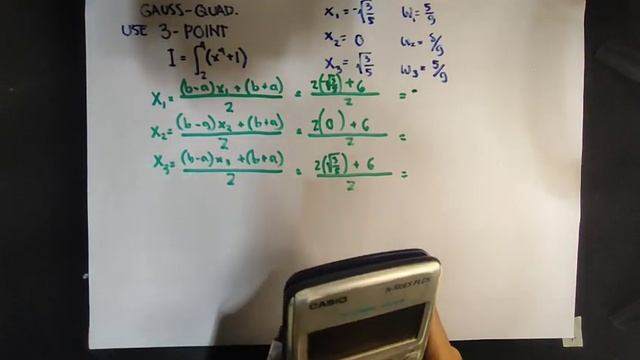 GAUSS-QUAD.
USE 3-POINT
I = ∫₂⁴ (x⁴+1)
x₁ = -√(3/5) W₁ = 5/9
x₂ = 0 W₂ = 8/9
x₃ = √(3/5) W₃ = 5/9
X₁ = ((b-a)x₁ + (b+a))/2 = (2(-√(3/5)) + 6)/2 =
X₂ = ((b-a)x₂ + (b+a))/2 = (2(0) + 6)/2 =
X₃ = ((b-a)x₃ + (b+a))/2 = (2(√(3/5)) + 6)/2 =
CASIO